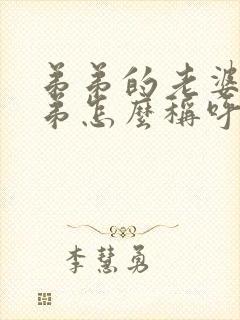 弟弟的老婆
弟怎麼稱呼
李慧勇